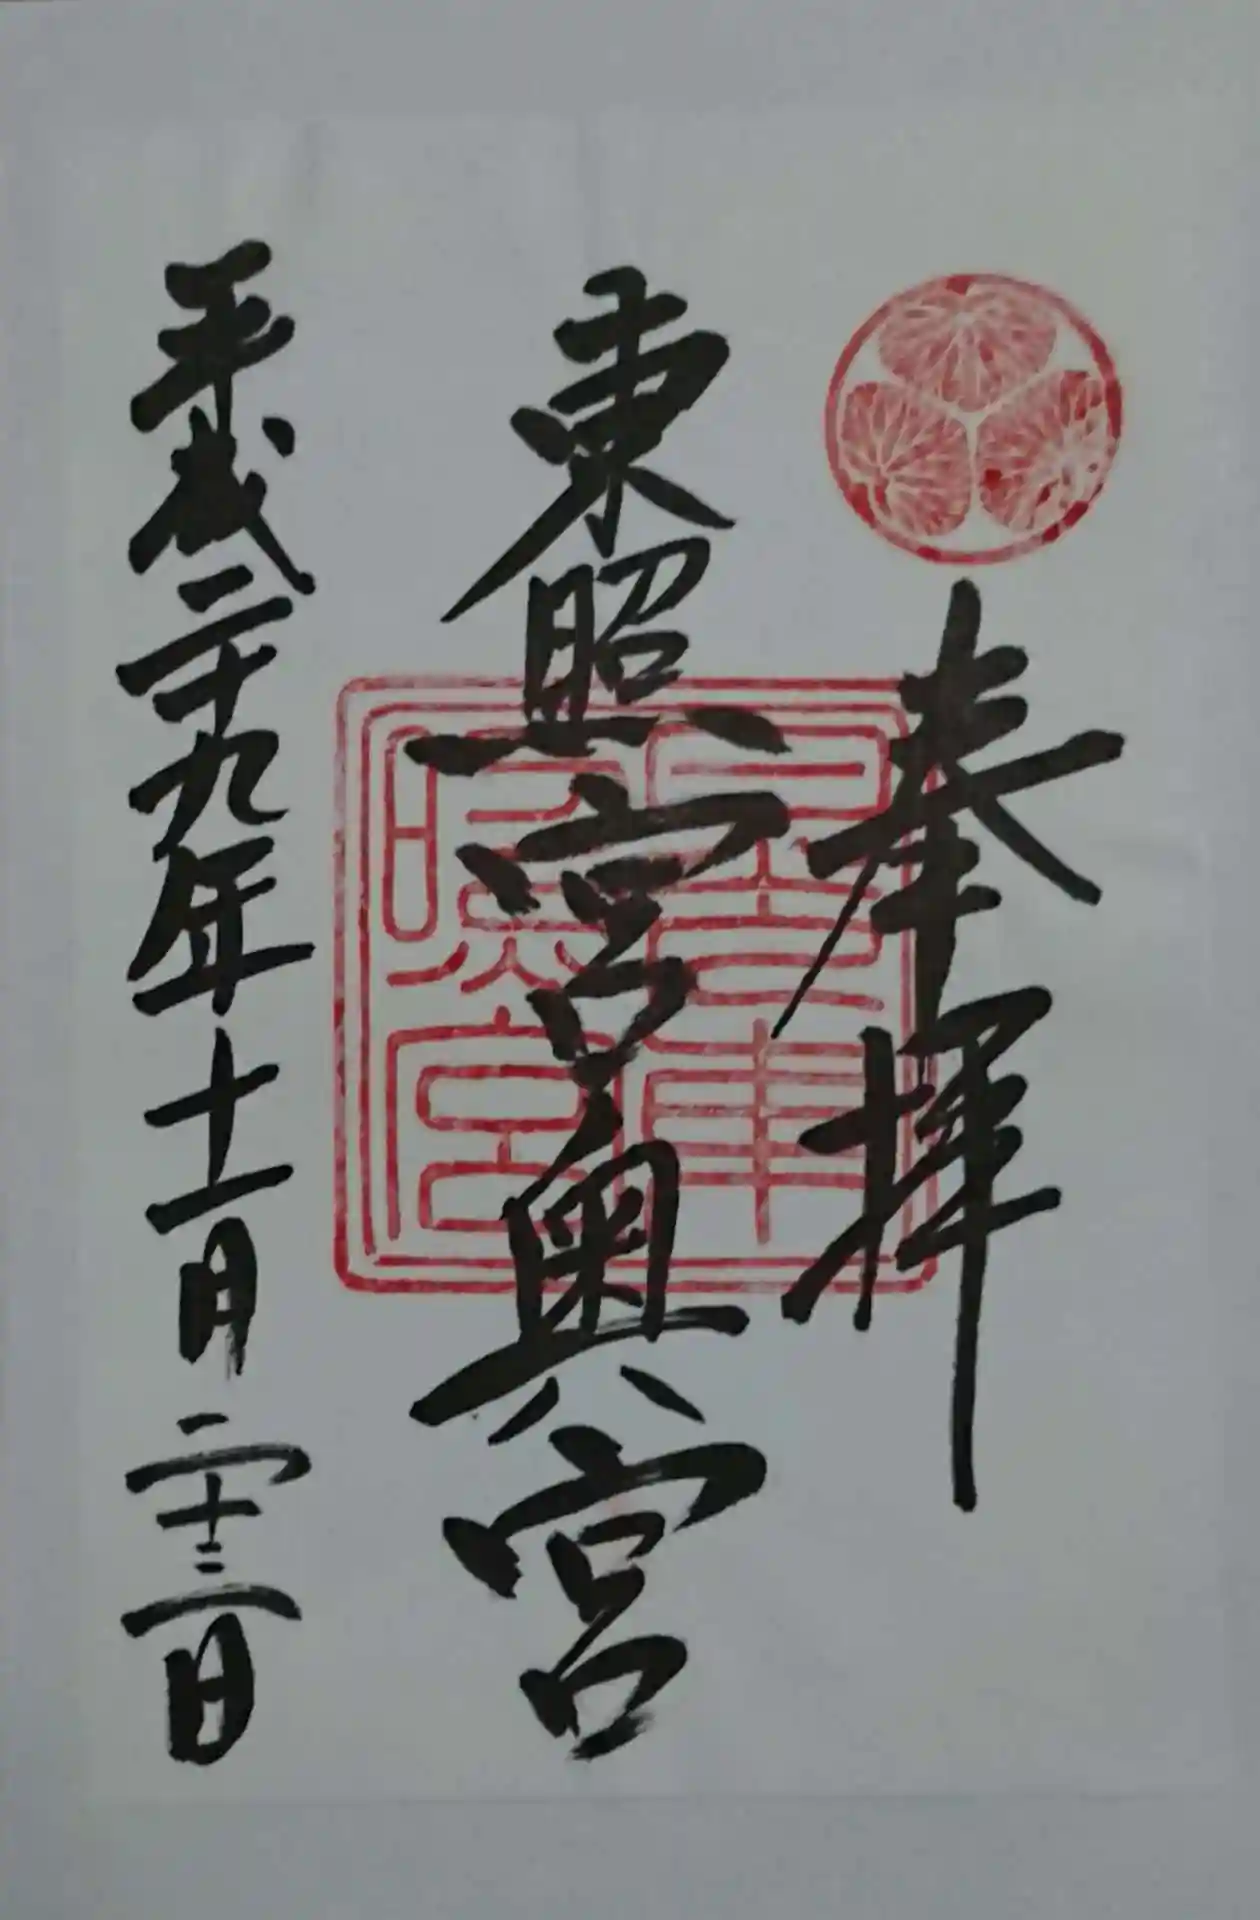 奉拝
東照宮奥宮
平成二十九年十一月二十三日